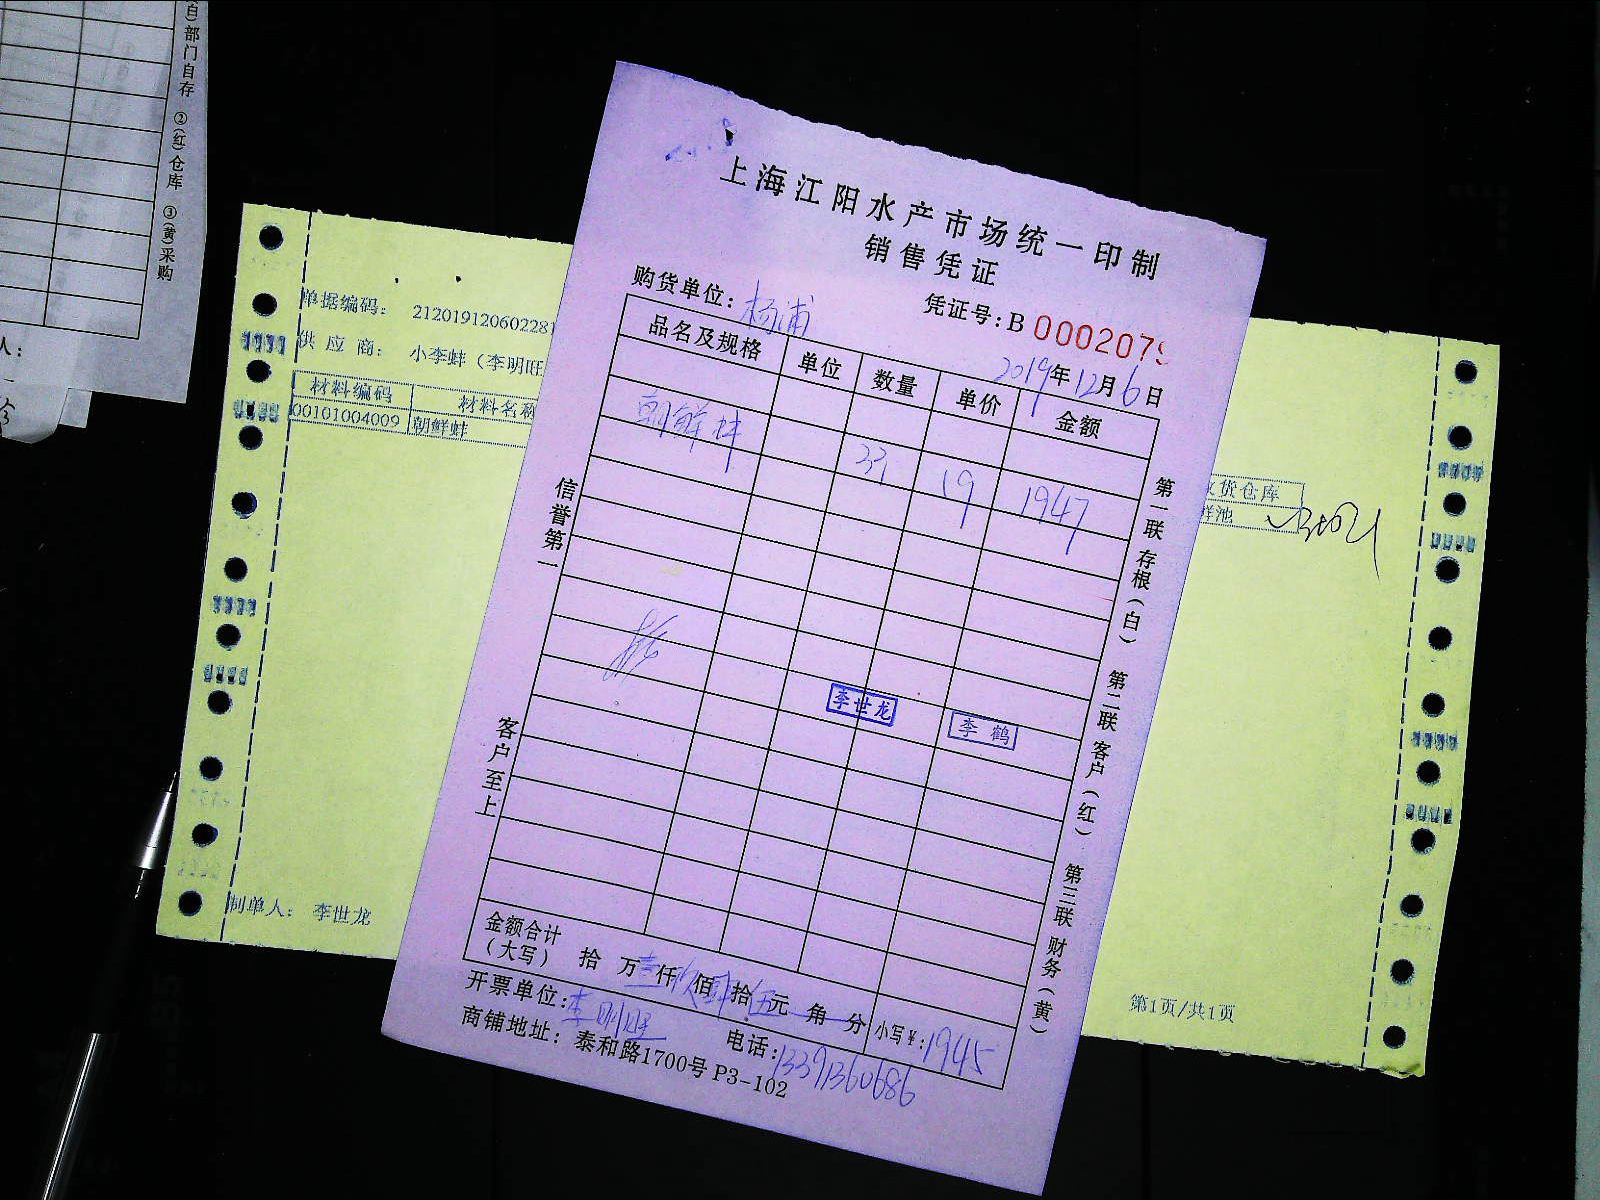 自)部门自存 ②(红)仓库 ③(黄)采购
人:
上海江阳水产市场统一印制
销售凭证
购货单位:杨浦
凭证号:B 0002079
2019年12月6日
品名及规格 单位 数量 单价 金额
朝鲜蚌 33 19 1947
信誉第一
客户至上
第一联 存根(白) 第二联 客户(红) 第三联 财务(黄)
李世龙
李鹤
金额合计
(大写) 拾 万壹仟玖佰肆拾伍元 角 分 小写¥:1945
开票单位:李明旺
电话:13391360686
商铺地址: 泰和路1700号 P3-102
单据编码: 212019120602281
供应商: 小李蚌(李明旺
材料编码 材料名称
00101004009 朝鲜蚌
货仓库
鲜池
制单人: 李世龙
第1页/共1页